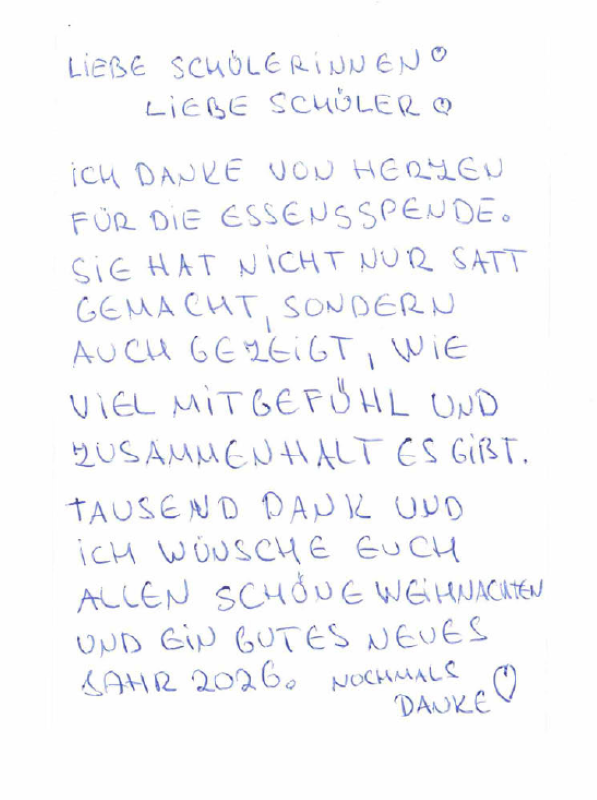 LiEBE SCHÜLERiNNEN!
LiEBE SCHÜLER!
iCH DANKE VON HERZEN
FÜR DiE ESSENSSPENDE.
SiE HAT NiCHT NUR SATT
GEMACHT, SONDERN
AUCH GEZEiGT, WiE
ViEL MiTGEFÜHL UND
ZUSAMMENHALT ES GiBT.
TAUSEND DANK UND
iCH WÜNSCHE EUCH
ALLEN SCHÖNE WEiHNACHTEN
UND EiN GUTES NEUES
JAHR 2026. NOCHMALS
DANKE